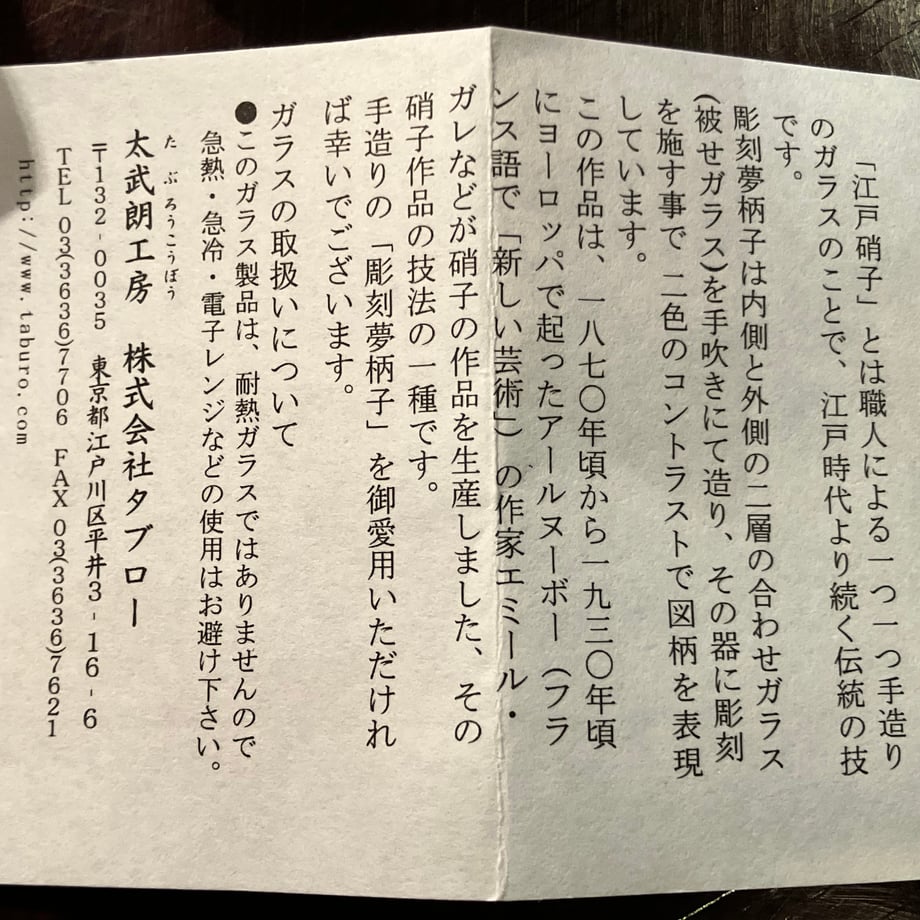 「江戸硝子」とは職人による一つ一つ手造り
のガラスのことで、江戸時代より続く伝統の技
です。
彫刻夢柄子は内側と外側の二層の合わせガラス
(被せガラス)を手吹きにて造り、その器に彫刻
を施す事で、二色のコントラストで図柄を表現
しています。
この作品は、一八七〇年頃から一九三〇年頃
にヨーロッパで起ったアールヌーボー（フラ
ンス語で「新しい芸術」）の作家エミール・
ガレなどが硝子の作品を生産しました、その
硝子作品の技法の一種です。
手造りの「彫刻夢柄子」を御愛用いただけれ
ば幸いでございます。
ガラスの取扱いについて
●このガラス製品は、耐熱ガラスではありませんので
急熱・急冷・電子レンジなどの使用はお避け下さい。
たぶろうこうぼう
太武朗工房 株式会社タブロー
〒132-0035 東京都江戸川区平井3-16-6
TEL 03(3636)7706 FAX 03(3636)7621
http://www.taburo.com